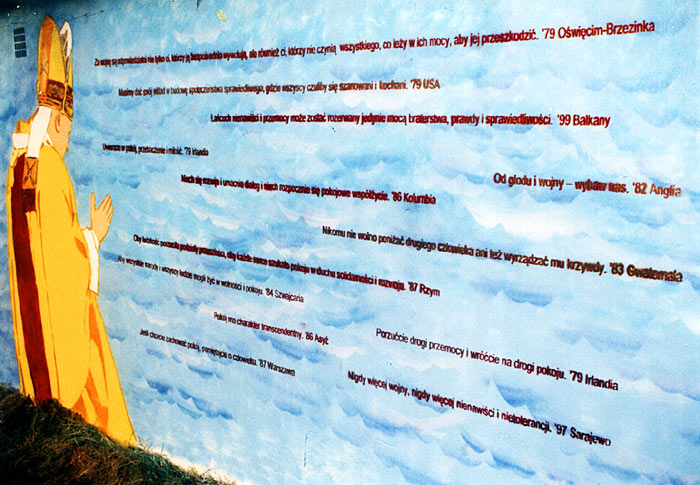 Za wojnę są odpowiedzialni nie tylko ci, którzy ją bezpośrednio wywołują, ale również ci, którzy nie czynią wszystkiego, co leży w ich mocy, aby jej przeszkodzić. '79 Oświęcim-Brzezinka
Musimy dać swój wkład w budowę społeczeństwa sprawiedliwego, gdzie wszyscy czuliby się szanowani i kochani. '79 USA
Łańcuch nienawiści i przemocy może zostać rozerwany jedynie mocą braterstwa, prawdy i sprawiedliwości. '99 Bałkany
Uwierzcie w pokój, przebaczenie i miłość. '79 Irlandia
Niech się rozwija i umacnia dialog i niech rozpocznie się pokojowe współżycie. '86 Kolumbia
Od głodu i wojny – wybaw nas. '82 Anglia
Nikomu nie wolno poniżać drugiego człowieka ani też wyrządzać mu krzywdy. '83 Gwatemala
Aby ludzkość porzuciła podziały, aby każde serce szukało pokoju w duchu solidarności i rozwoju. '87 Rzym
Aby wszystkie narody i wszyscy ludzie mogli żyć w wolności i pokoju. '84 Szwajcaria
Pokój ma charakter transcendentny. '86 Asyż
Porzućcie drogi przemocy i wróćcie na drogi pokoju. '79 Irlandia
Jeśli chcecie zachować pokój, pamiętajcie o człowieku. '87 Warszawa
Nigdy więcej wojny, nigdy więcej nienawiści i nietolerancji. '97 Sarajewo